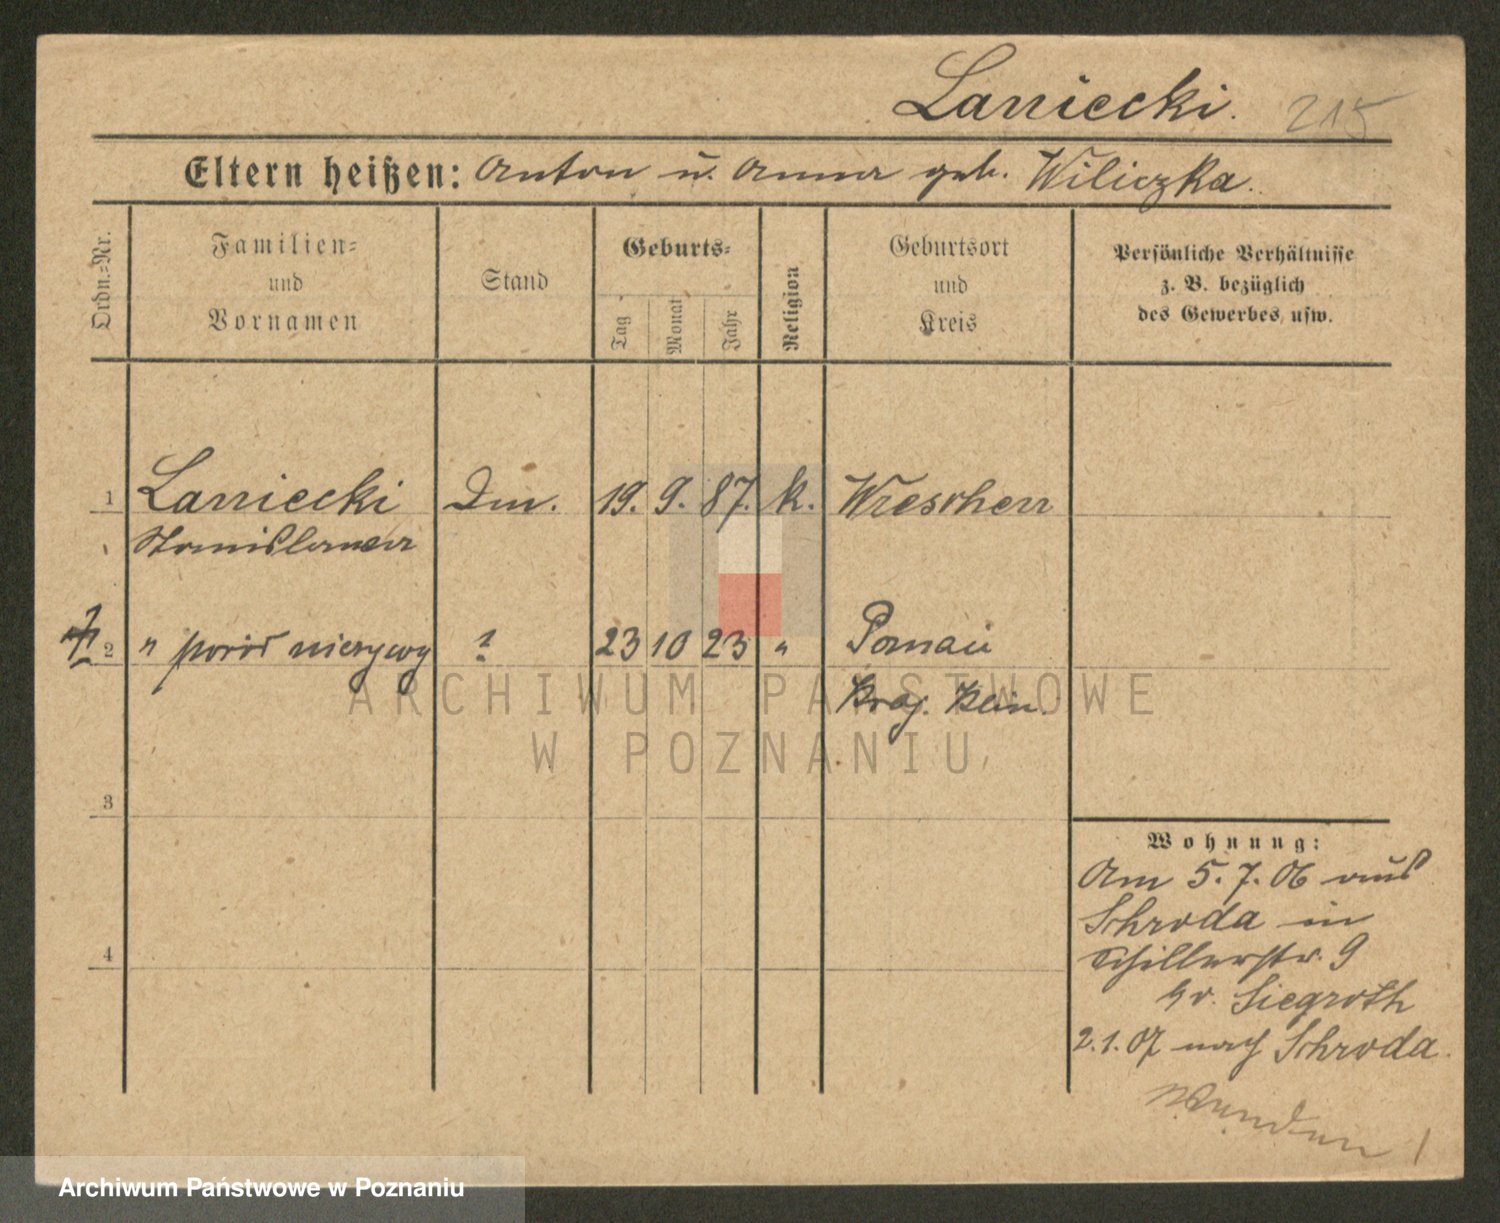 Laniecki. 215
Eltern heißen: Anton u. Anna geb. Wiliczka.
Ordn.=Nr.
Familien=
und
Vornamen
Stand
Geburts=
Tag
Monat
Jahr
Religion
Geburtsort
und
Kreis
Persönliche Verhältnisse
z. B. bezüglich
des Gewerbes, usw.
1 Laniecki Dm. 19. 9. 87. k. Wreschen
Stanislawa
2 " poród nieżywy ? 23 10 23 " Poznań
Krag. Klin.
3
4
Wohnung:
Am 5.7.06 aus
Schroda in
Schillerstr. 9
bv. Siegroth
2.1.07 nach Schroda.
ARCHIWUM PAŃSTWOWE
W POZNANIU
Archiwum Państwowe w Poznaniu